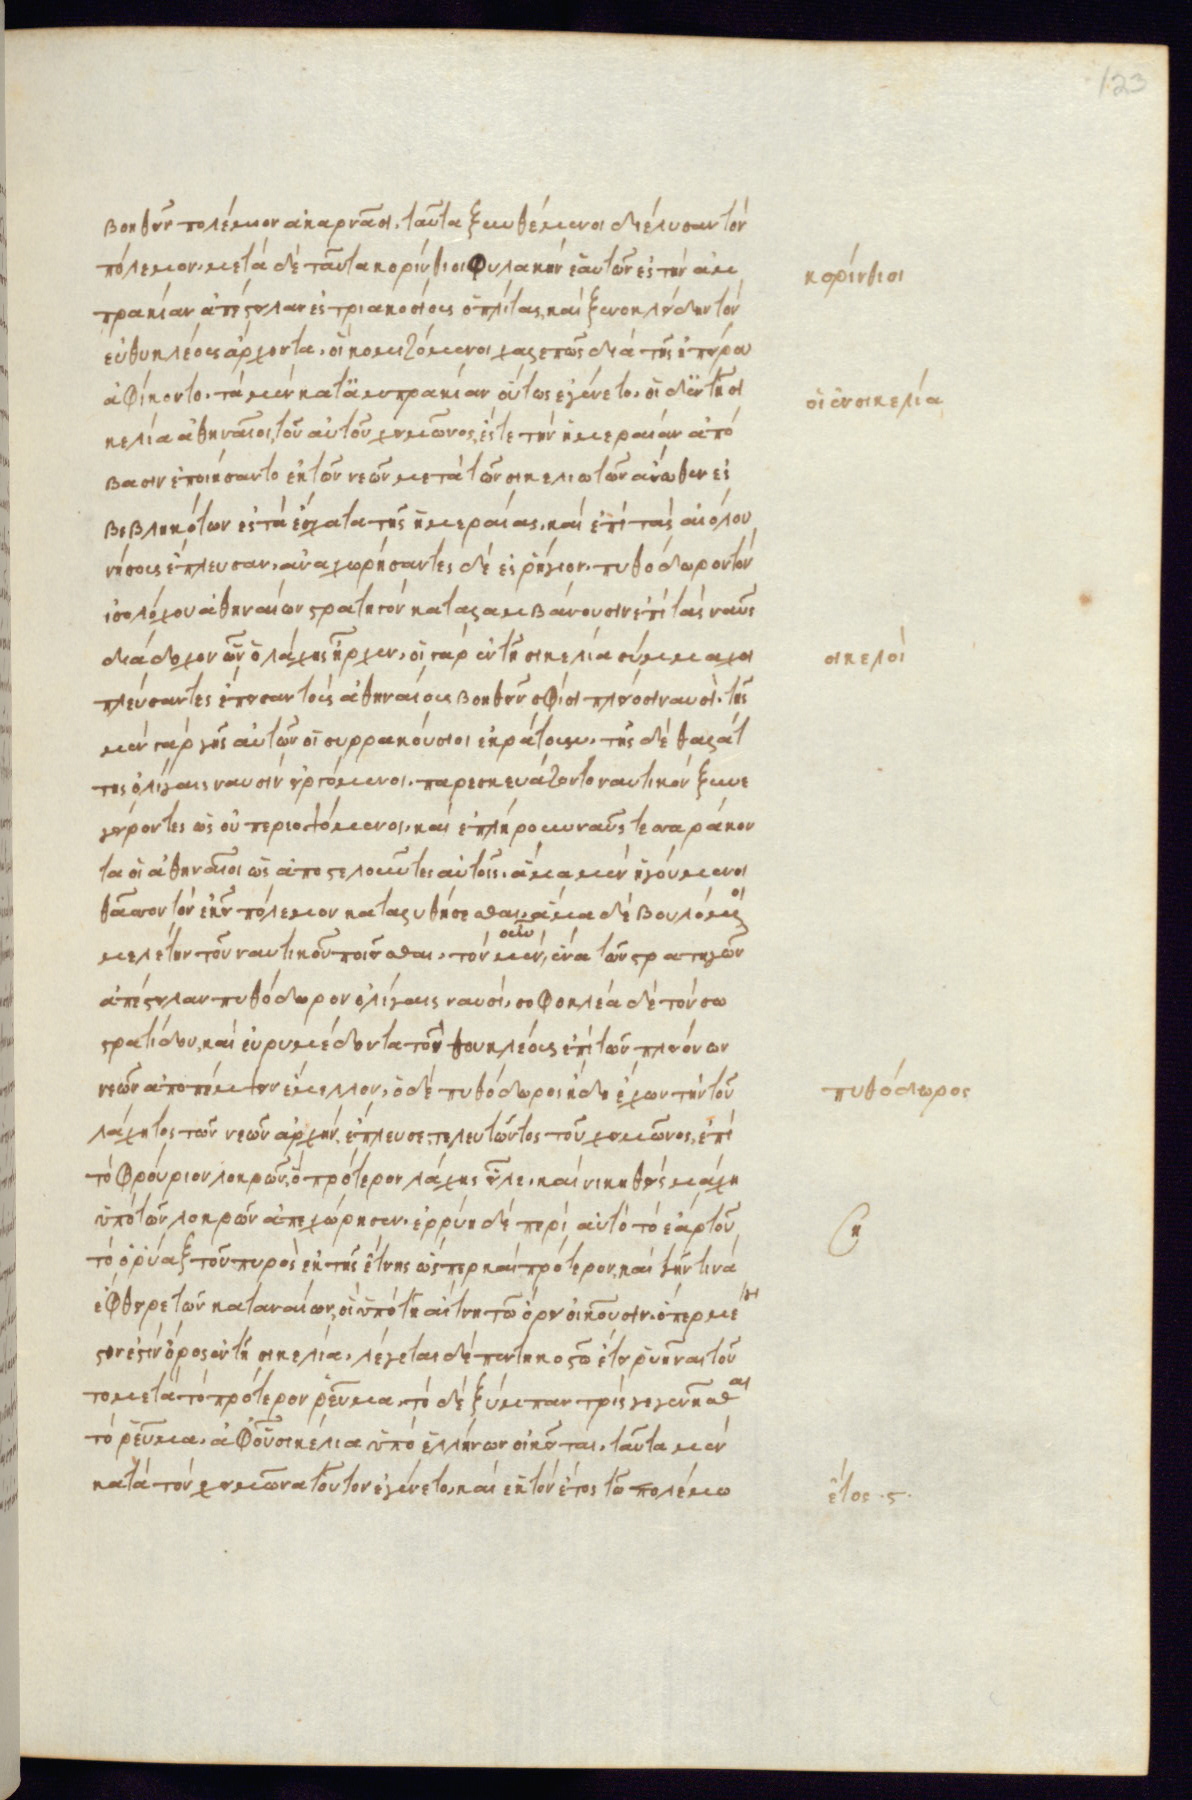 123
βοηθεῖν πολέμιον ἀκαρνᾶσι. ταῦτα ξυνθέμενοι διέλυσαν τὸν
πόλεμον. μετὰ δὲ ταῦτα κορίνθιοι φυλακὴν ἑαυτῶν ἐς τὴν ἀμ
πρακίαν ἀπέστειλαν ἐς τριακοσίους ὁπλίτας, καὶ ξενοκλείδην τὸν
εὐθυκλέους ἄρχοντα. οἳ κομιζόμενοι χαλεπῶς διὰ τῆς ἠπείρου
ἀφίκοντο. τὰ μὲν κατ᾽ ἀμπρακίαν οὕτως ἐγένετο. οἱ δ᾽ ἐν τῇ σι
κελία ἀθηναῖοι, τοῦ αὐτοῦ χειμῶνος, ἔς τε τὴν ἱμεραίαν ἀπό
βασιν ἐποιήσαντο ἐκ τῶν νεῶν μετὰ τῶν σικελιωτῶν ἄνωθεν ἐσ
βεβληκότων ἐς τὰ ἔσχατα τῆς ἱμεραίας. καὶ ἐπὶ τὰς αἰόλου
νήσους ἔπλευσαν. ἀναχωρήσαντες δὲ ἐς ῥήγιον. πυθόδωρον τὸν
ἰσολόχου ἀθηναίων στρατηγὸν καταλαμβάνουσιν ἐπὶ τὰς ναῦς
διάδοχον ὧν ὁ λάχης ἦρχεν. οἱ γὰρ ἐν τῇ σικελία σύμμαχοι
πλεύσαντες ἔπεισαν τοὺς ἀθηναίους βοηθεῖν σφίσι πλείοσι ναυσί. τῆς
μὲν γὰρ γῆς αὐτῶν οἱ συρρακούσιοι ἐκράτουν. τῆς δὲ θαλάτ
της ὀλίγαις ναυσὶν εἰργόμενοι. παρεσκευάζοντο ναυτικὸν ξυνα
γείροντες ὡς οὐ περιοψόμενοι. καὶ ἐπλήρουν ναῦς τεσσαράκον
τα οἱ ἀθηναῖοι ὡς ἀποστελοῦντες αὐτοῖς. ἅμα μὲν ἡγούμενοι
θᾶσσον τὸν ἐκεῖ πόλεμον καταλυθήσεσθαι. ἅμα δὲ βουλόμενοι
μελέτην τοῦ ναυτικοῦ ποιεῖσθαι. τὸν μὲν οὖν, ἕνα τῶν στρατηγῶν
ἀπέστειλαν πυθόδωρον ὀλίγαις ναυσί. σοφοκλέα δὲ τὸν σω
στρατίδου, καὶ εὐρυμέδοντα τὸν θουκλέους ἐπὶ τῶν πλειόνων
νεῶν ἀποπέμψειν ἔμελλον. ὁ δὲ πυθόδωρος ἤδη ἔχων τὴν τοῦ
λάχητος τῶν νεῶν ἀρχὴν. ἔπλευσε, τελευτῶντος τοῦ χειμῶνος, ἐπὶ
τὸ φρούριον λοκρῶν, ὃ πρότερον λάχης εἷλε. καὶ νικηθεὶς μάχη
ὑπὸ τῶν λοκρῶν ἀπεχώρησεν. ἐρρύη δὲ περὶ αὐτὸ τὸ ἔαρ τοῦ
το, ὁ ῥύαξ τοῦ πυρὸς ἐκ τῆς αἴτνης ὥσπερ καὶ πρότερον, καὶ γῆν τινὰ
ἔφθειρε τῶν καταναίων, οἳ ὑπὸ τῇ αἴτνη τῶ ὄρει οἰκοῦσιν. ὅπερ μέγι
στόν ἐστιν ὄρος ἐν τῇ σικελία. λέγεται δὲ πεντηκοστῶ ἔτει ῥυῆναι τοῦ
το μετὰ τὸ πρότερον ῥεῦμα. τὸ δὲ ξύμπαν τρὶς γεγενῆσθαι
τὸ ῥεῦμα. ἀφ᾽ οὗ σικελία ὑπὸ ἑλλήνων οἰκεῖται. ταῦτα μὲν
κατὰ τὸν χειμῶνα τοῦτον ἐγένετο. καὶ ἕκτον ἔτος τῶ πολέμω
κορίνθιοι
οἱ ἐν σικελία
σικελοὶ
πυθόδωρος
ση
ἔτος .ς.